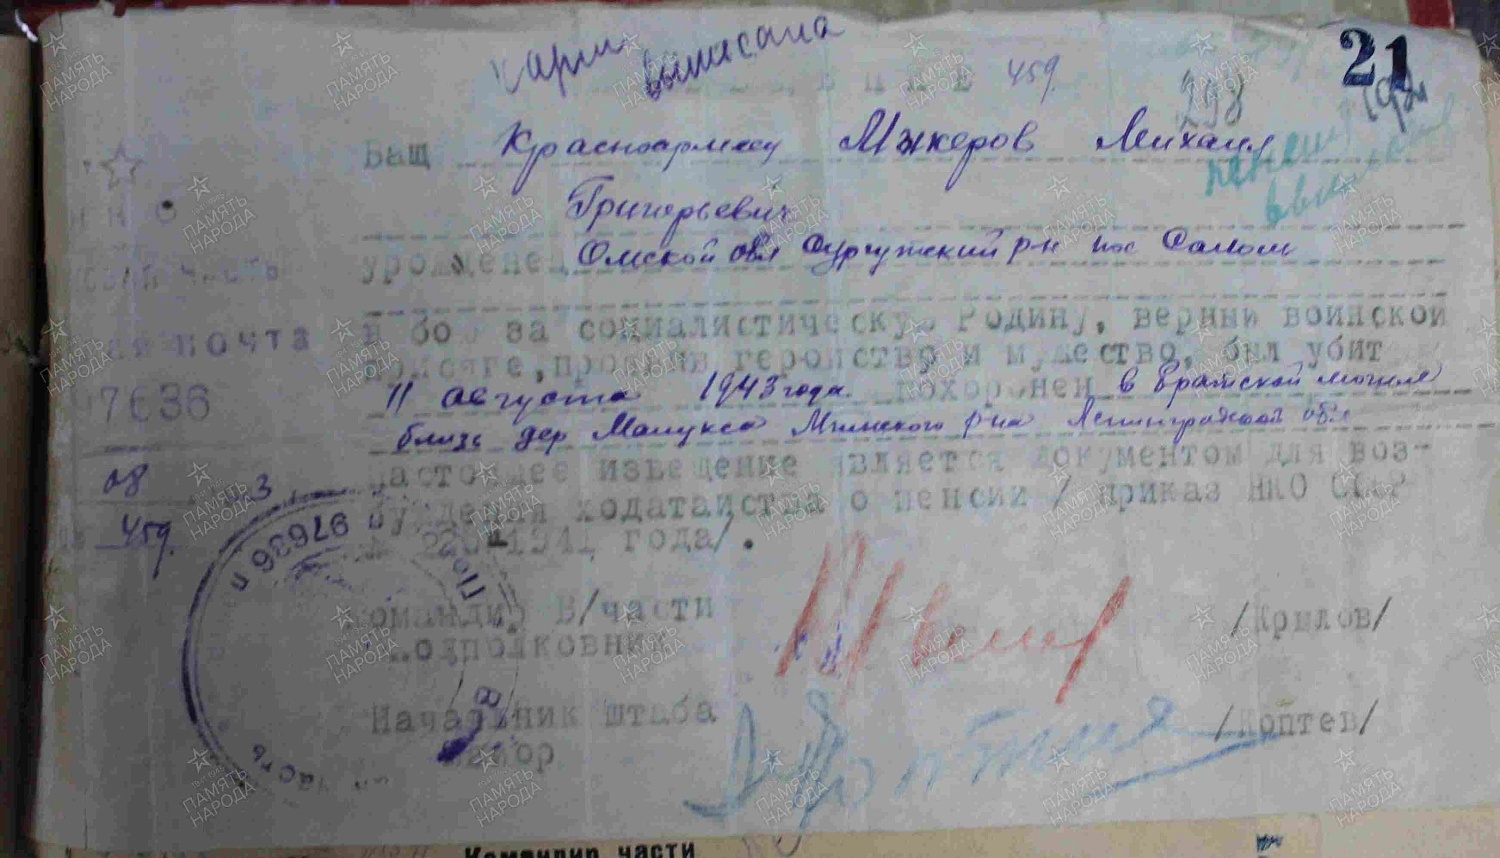 21
выписана
459
298
Ваш Красноармеец Мжкеров Михаил
Григорьевич
уроженец Омской обл Сургутский р-н пос Салом
в бою за социалистическую Родину, верный воинской
присяге, проявив геройство и мужество, был убит
11 августа 1943 года похоронен в братской могиле
близь дер Малукса Мгинского р-на Ленинградской обл
Настоящее извещение является документом для воз-
буждения ходатайства о пенсии / приказ НКО СССР
года/.
НКО
часть
почта
97636
08
459
97636
Полевая
часть
Командир В/части
подполковник /Крылов/
Начальник штаба
майор /Коптев/
Командир части
ПАМЯТЬ НАРОДА